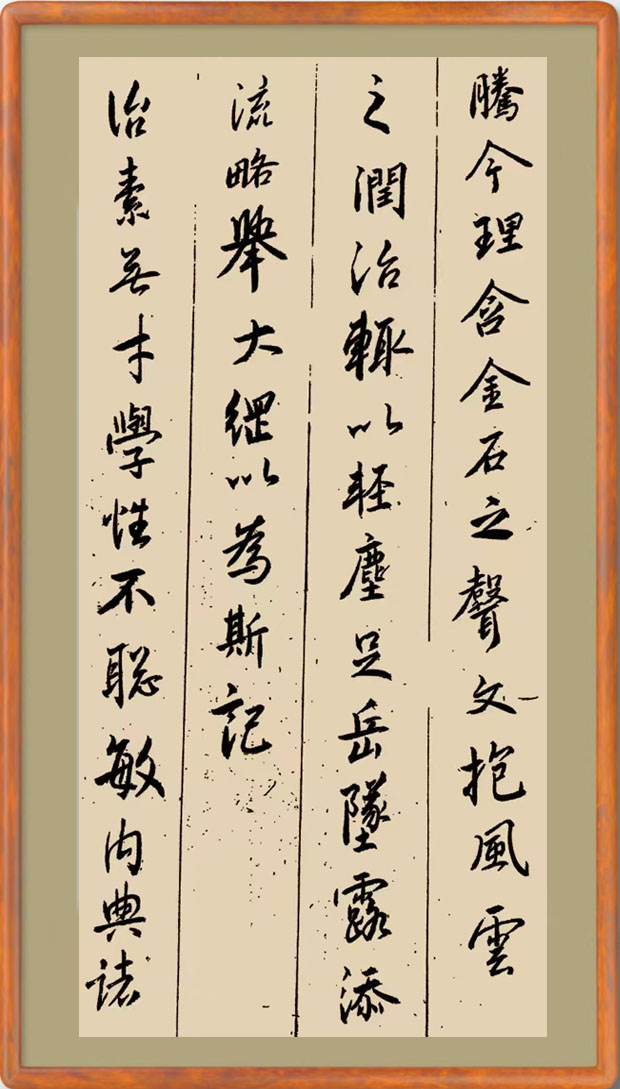 騰今理含金石之聲文抱風雲
之潤治輒以輕塵足岳墜露添
流略舉大綱以為斯記
治素無才學性不聰敏內典諸